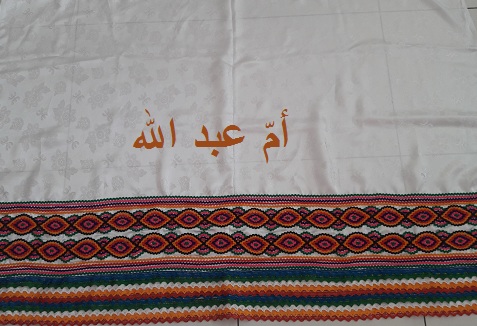 أمّ عبد الله